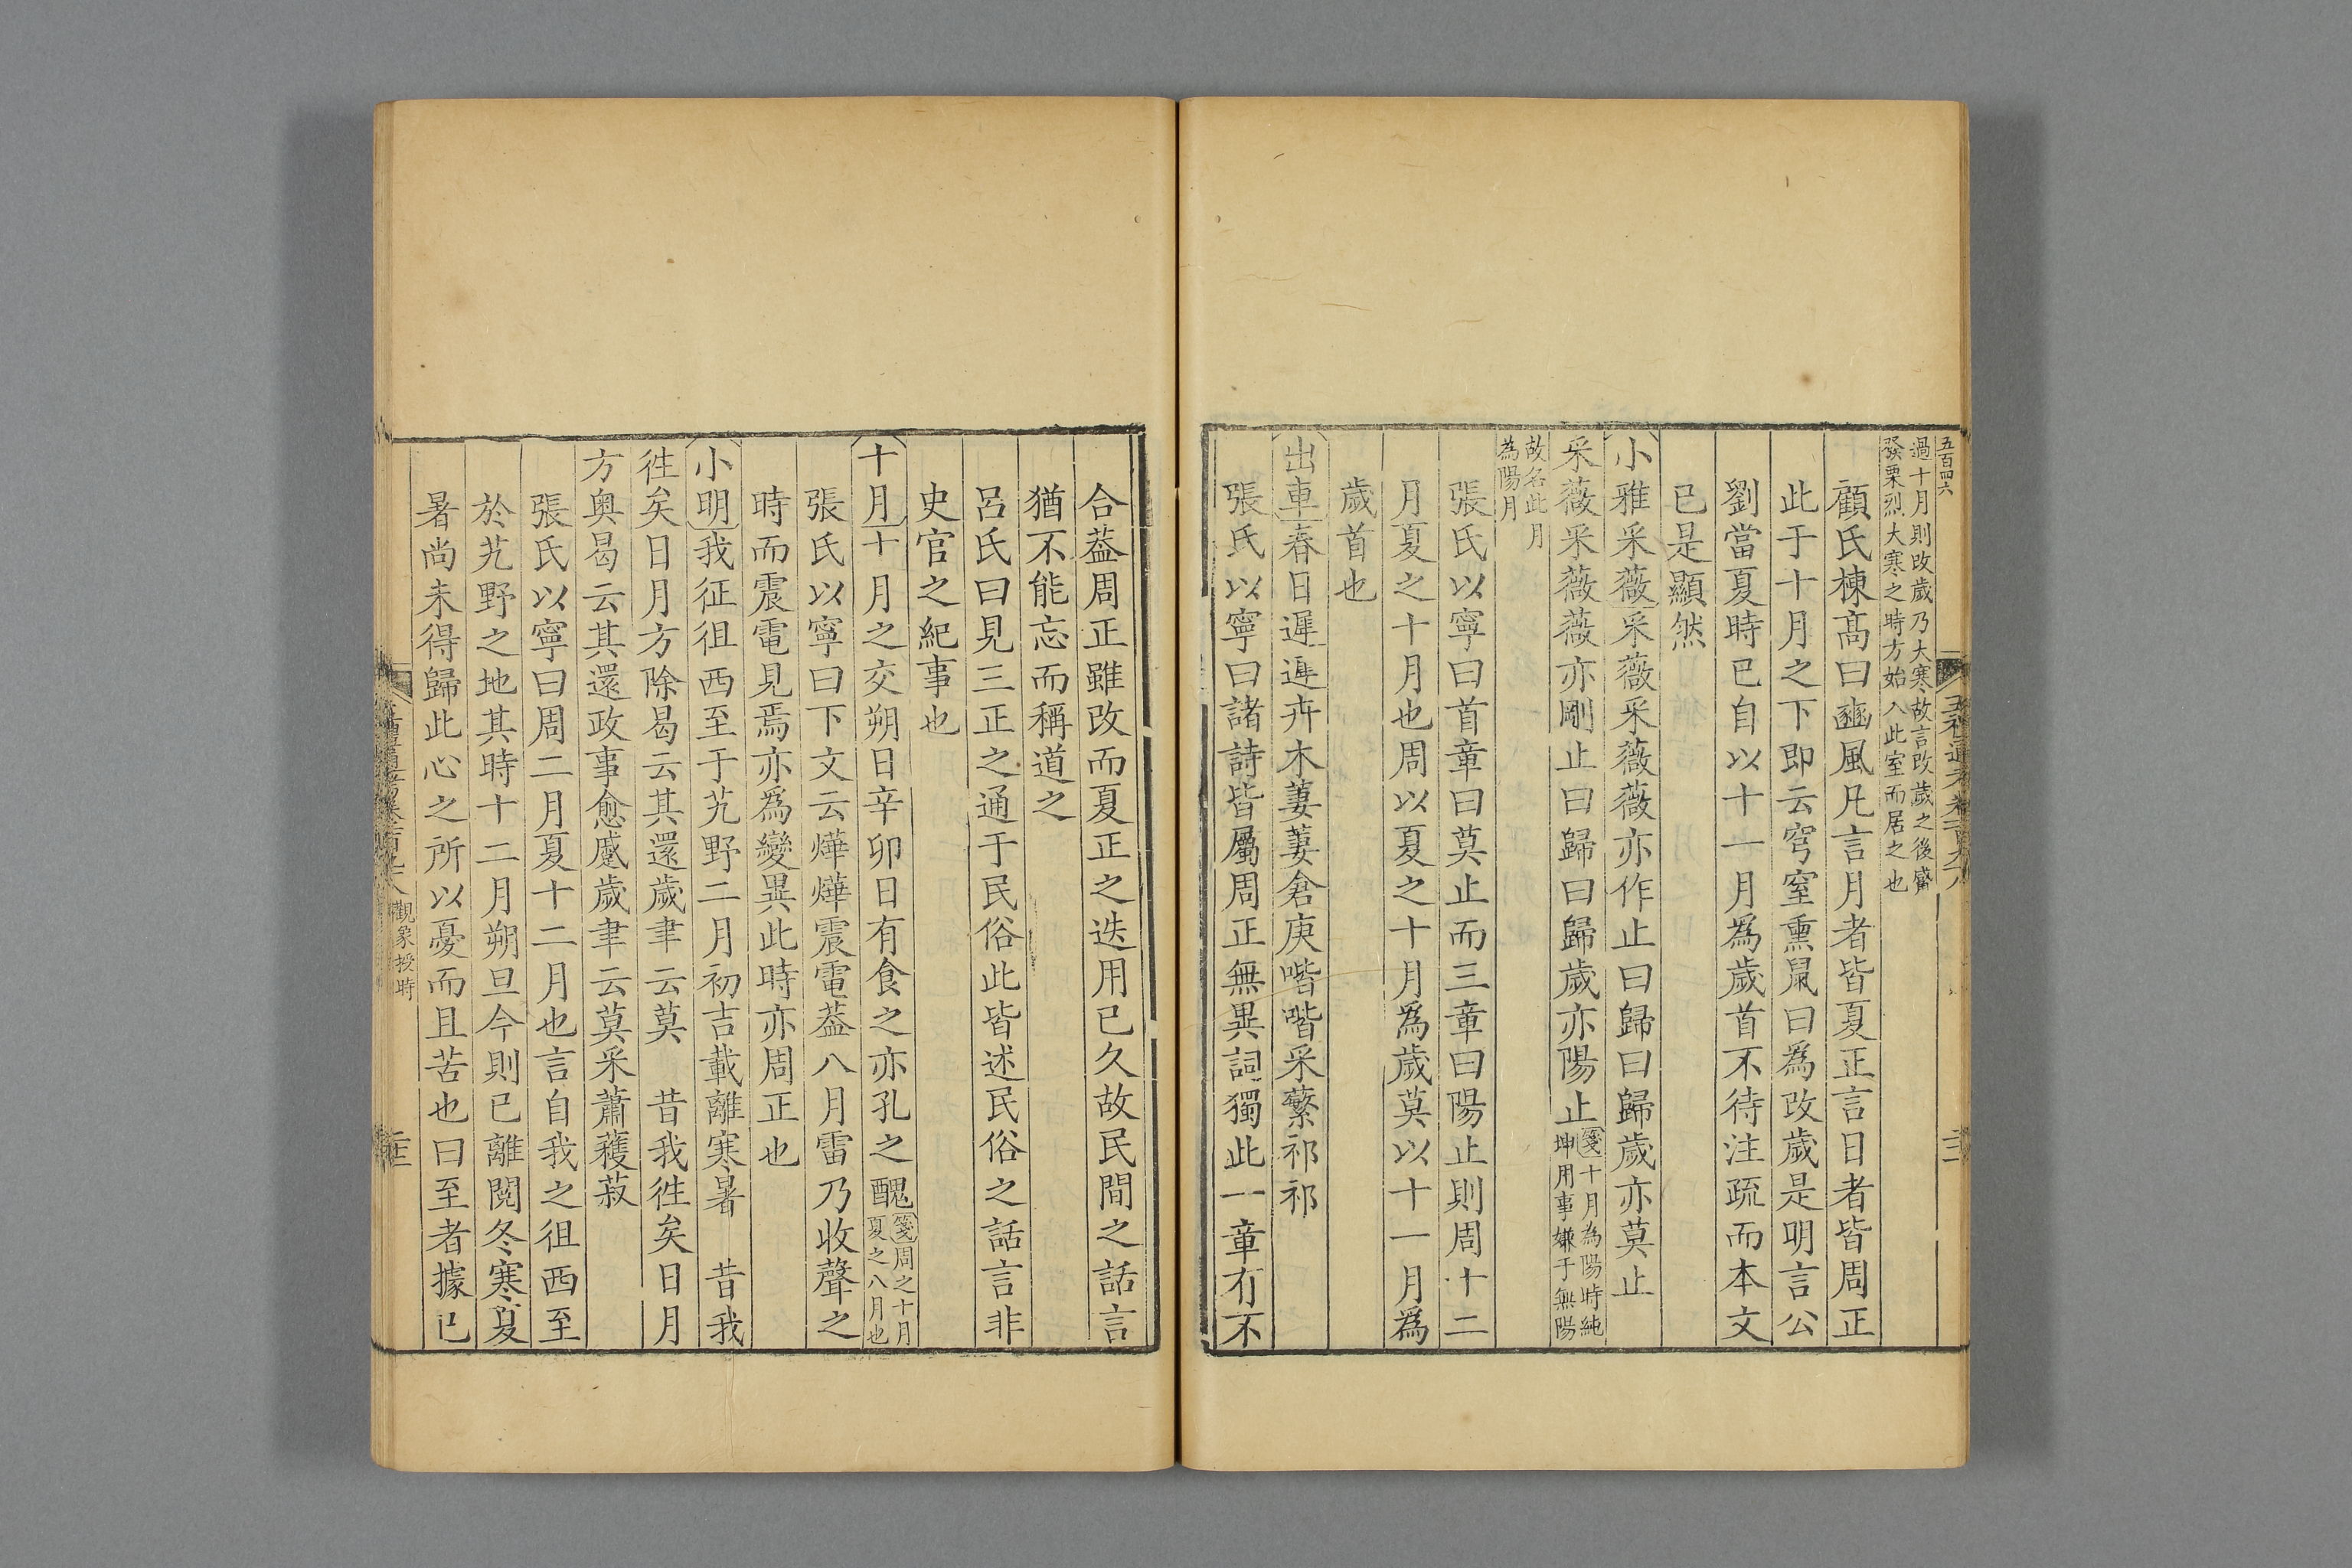 五百四六
過十月則改歲乃大寒故言改歲之後觱
發栗烈大寒之時方始入此室而居之也
顧氏棟髙曰豳風凡言月者皆夏正言日者皆周正
此于十月之下即云穹窒熏鼠曰爲改歲是明言公
劉當夏時已自以十一月爲歲首不待注疏而本文
已是顯然
小雅采薇采薇采薇薇亦作止曰歸曰歸歲亦莫止
采薇采薇薇亦剛止曰歸曰歸歲亦陽止
箋十月為陽時純
坤用事嫌于無陽
故名此月
為陽月
張氏以寧曰首章曰莫止而三章曰陽止則周十二
月夏之十月也周以夏之十月爲歲莫以十一月爲
歲首也
出車春日遲遲卉木萋萋倉庚喈喈采蘩祁祁
張氏以寧曰諸詩皆屬周正無異詞獨此一章有不
合葢周正雖改而夏正之迭用已久故民間之話言
猶不能忘而稱道之
呂氏曰見三正之通于民俗此皆述民俗之話言非
史官之紀事也
十月十月之交朔日辛卯日有食之亦孔之醜
箋周之十月
夏之八月也
張氏以寧曰下文云爗爗震電葢八月雷乃收聲之
時而震電見焉亦爲變異此時亦周正也
小明我征徂西至于艽野二月初吉載離寒暑　昔我
徃矣日月方除曷云其還歲聿云莫　昔我徃矣日月
方奥曷云其還政事愈蹙歲聿云莫采蕭穫菽
張氏以寧曰周二月夏十二月也言自我之徂西至
於艽野之地其時十二月朔旦今則已離閱冬寒夏
暑尚未得歸此心之所以憂而且苦也曰至者據已
觀象授時